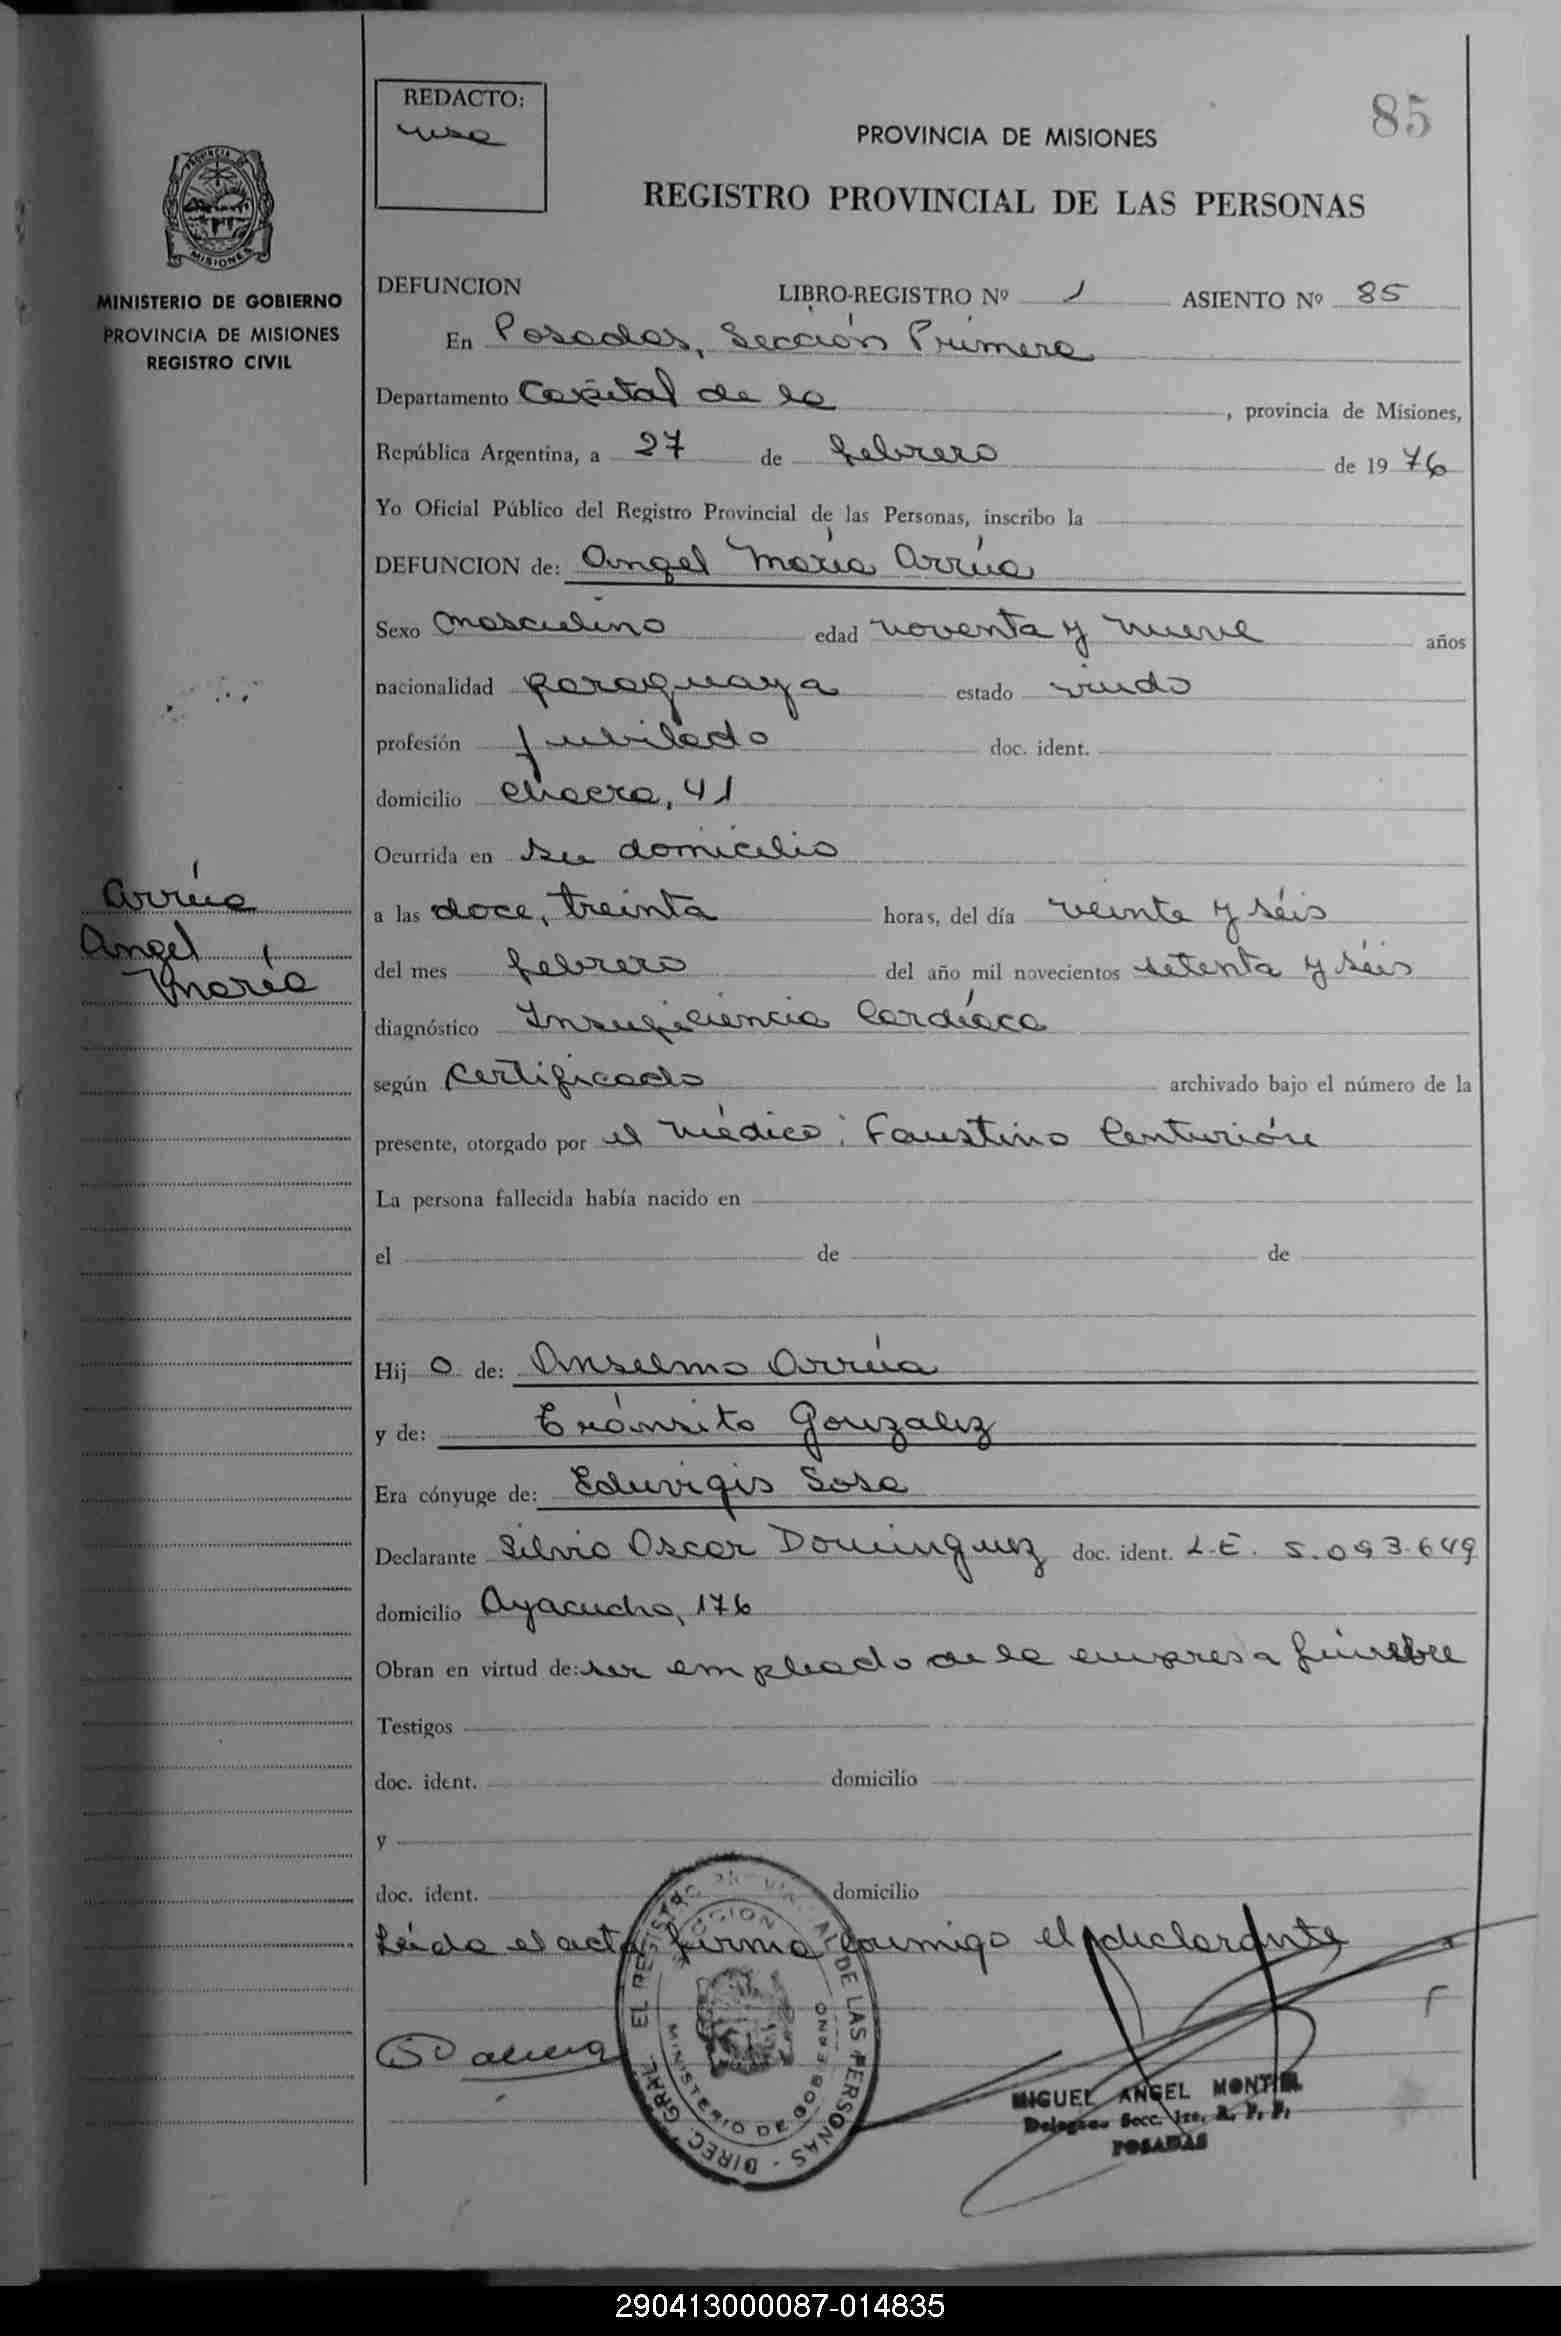 85
REDACTO:
PROVINCIA DE MISIONES
REGISTRO PROVINCIAL DE LAS PERSONAS
PROVINCIA DE
MISIONES
MINISTERIO DE GOBIERNO
PROVINCIA DE MISIONES
REGISTRO CIVIL
DEFUNCION LIBRO-REGISTRO Nº 1 ASIENTO Nº 85
En Posadas, Sección Primera
Departamento Capital de la , provincia de Misiones,
República Argentina, a 27 de febrero de 1976
Yo Oficial Público del Registro Provincial de las Personas, inscribo la
DEFUNCION de: Angel María Arrúa
Sexo masculino edad noventa y nueve años
nacionalidad paraguaya estado viudo
profesión jubilado doc. ident.
domicilio chacra, 41
Ocurrida en su domicilio
Arrúa
Angel
María
a las doce, treinta horas, del día veinte y séis
del mes febrero del año mil novecientos setenta y séis
diagnóstico Insuficiencia Cardíaca
según certificado archivado bajo el número de la
presente, otorgado por el médico: Faustino Centurión
La persona fallecida había nacido en
el de de
Hijo de: Anselmo Arrúa
y de: Tránsito Gonzalez
Era cónyuge de: Eduvigis Sosa
Declarante Silvio Oscar Dominguez doc. ident. L.E. 5.093.649
domicilio Ayacucho, 176
Obran en virtud de: ser empleado de la empresa fúnebre
Testigos
doc. ident. domicilio
y
doc. ident. domicilio
Leída el acta firma conmigo el declarante
EL REGISTRO PROVINCIAL DE LAS PERSONAS - DIREC. GRAL.
MINISTERIO DE GOBIERNO
MIGUEL ANGEL MONTIEL
Secc. 1ra. R. P. P.
POSADAS
290413000087-014835